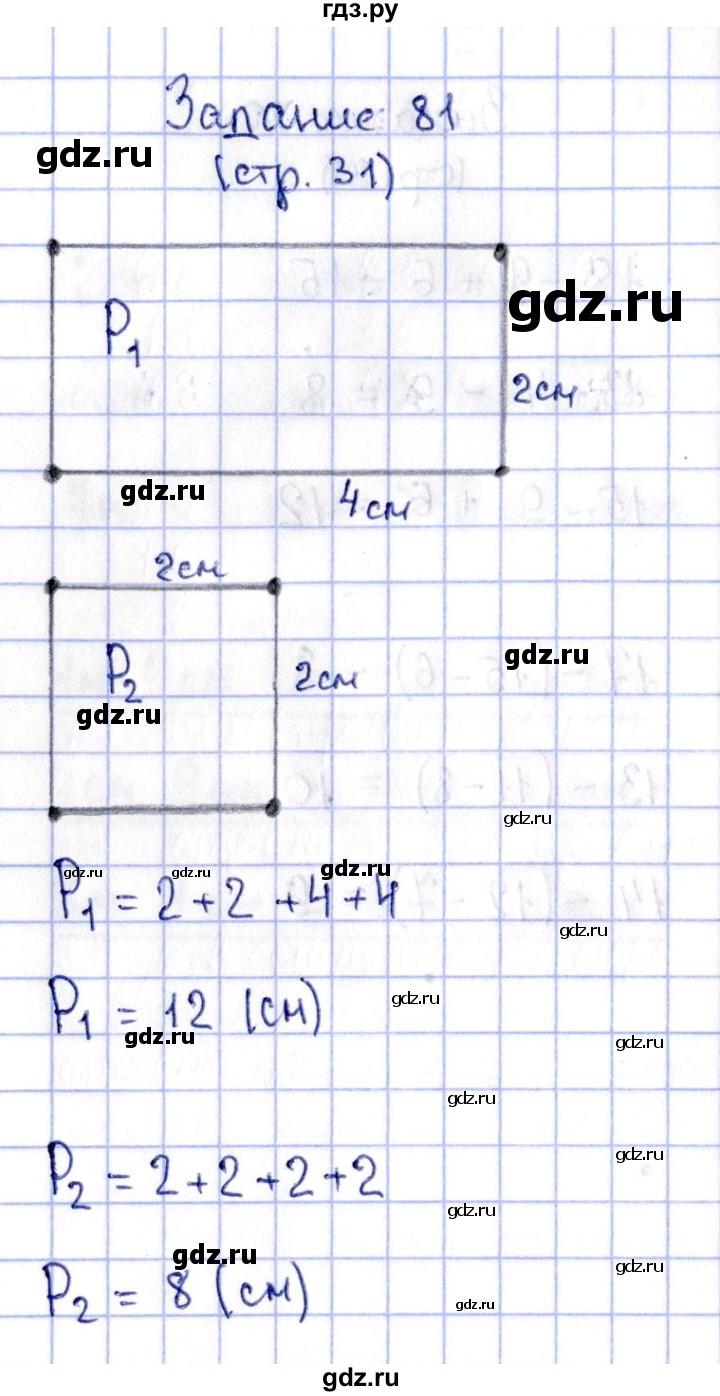 гдз.ру
Задание 81
gdz.ru
(стр. 31)
gdz.ru
P1
2см
gdz.ru
4см
2см
P2
gdz.ru
2см
gdz.ru
gdz.ru
gdz.ru
gdz.ru
gdz.ru
P1 = 2 + 2 + 4 + 4
gdz.ru
P1 = 12 (см)
gdz.ru
gdz.ru
gdz.ru
gdz.ru
gdz.ru
P2 = 2 + 2 + 2 + 2
gdz.ru
gdz.ru
gdz.ru
P2 = 8 (см)
gdz.ru
gdz.ru